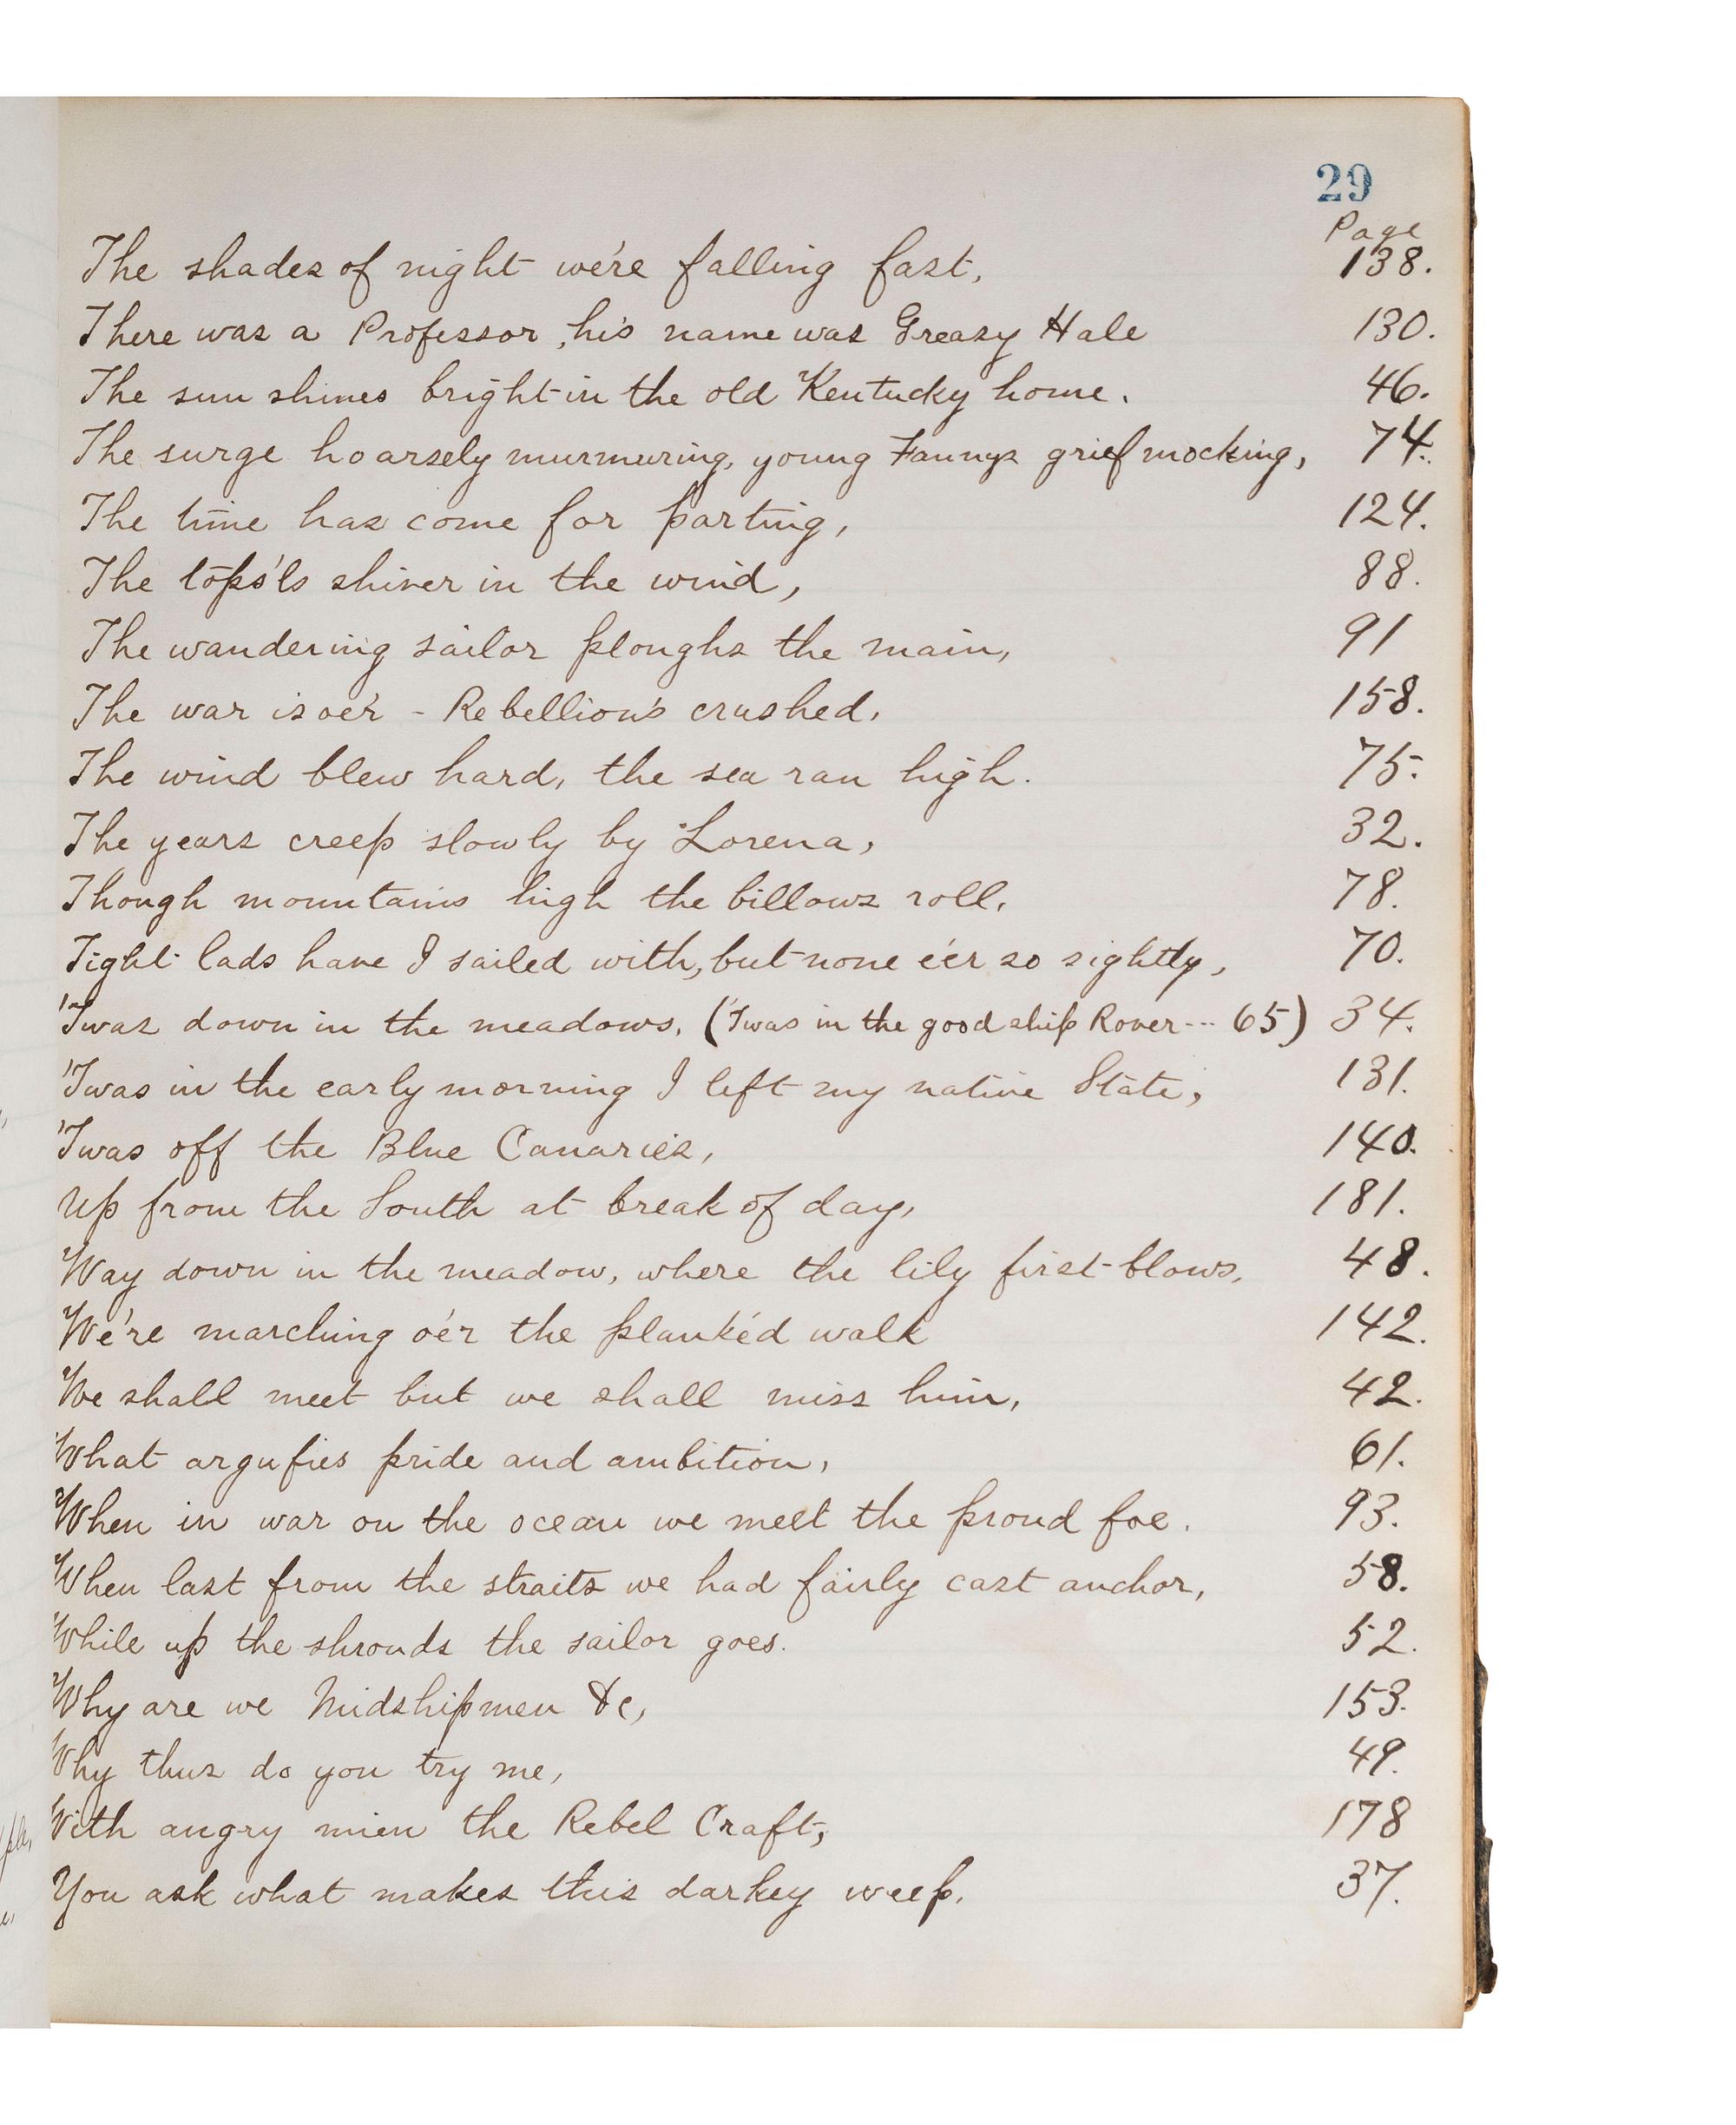 29
Page
The shades of night we're falling fast, 138.
There was a Professor, his name was Greasy Hale 130.
The sun shines bright in the old Kentucky home. 46.
The surge hoarsely murmuring, young Fannys grief mocking, 74.
The time has come for parting, 124.
The tops'ls shiver in the wind, 88.
The wandering sailor ploughs the main, 91
The war is oe'r - Rebellion's crushed. 158.
The wind blew hard, the sea ran high. 75.
The years creep slowly by Lorena, 32.
Though mountains high the billows roll. 78.
Tight lads have I sailed with, but none e'er so sightly, 70.
'Twas down in the meadows. ('Twas in the good ship Rover --- 65) 34.
'Twas in the early morning I left my native State, 131.
'Twas off the Blue Canaries, 140.
Up from the South at break of day, 181.
Way down in the meadow, where the lily first blows, 48.
We're marching o'er the plank'ed walk 142.
We shall meet but we shall miss him, 42.
What argufies pride and ambition, 61.
When in war on the ocean we meet the proud foe. 93.
When last from the straits we had fairly cast anchor, 58.
While up the shrouds the sailor goes. 52.
Why are we Midshipmen &c, 153.
Why thus do you try me, 49.
With angry mien the Rebel Craft, 178
You ask what makes this darkey weep. 37.